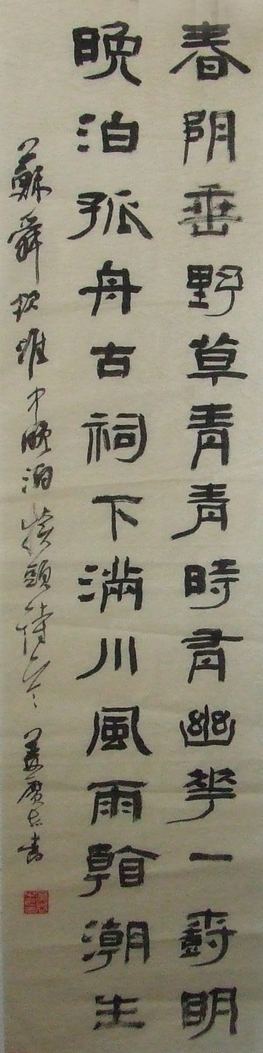 春阴垂野草青青時有幽華一尌明
晚泊孤舟古祠下滿川風雨看潮生
蘇舜欽淮中晚泊犢頭詩 姜書